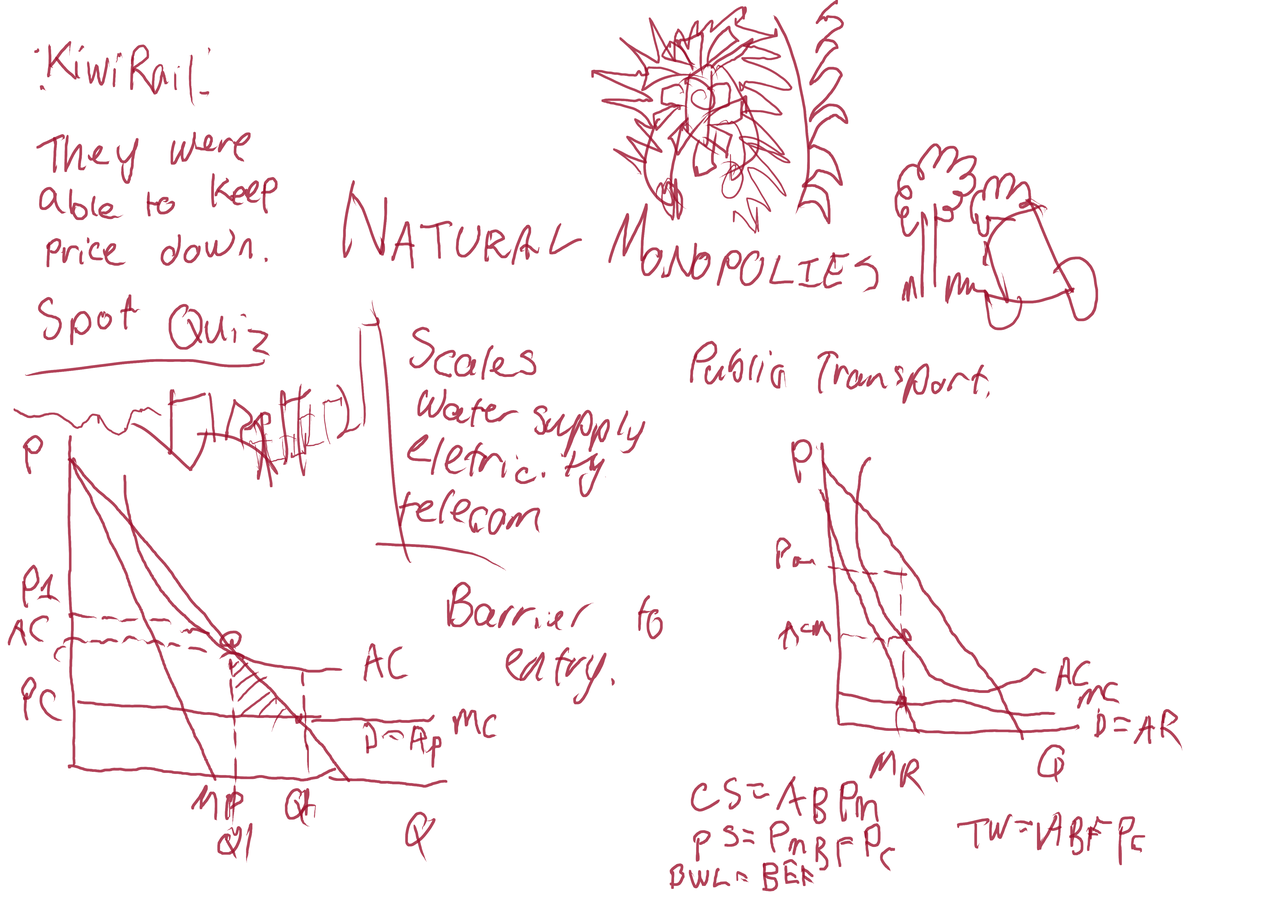 KiwiRail
They were
able to keep
price down.
NATURAL MONOPOLIES
Spot Quiz
Scales
Water supply
eletric.ty
telecom
Public Transport.
Barrier to
entry.
P
P1
AC
c
PC
AC
MC
Q1
Q
P
Pm
ACm
AC
MC
D=AR
MR
Q
CS=ABPm
PS=PmBFPc
TW=ABFPc